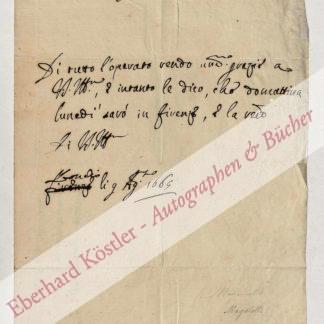 Di tutto l'operato rendo um.e grazie a
V.S. Ill.ma, e intanto le dico, che domattina
lunedì sarò in firenze, e la
di V.S. Ill.ma
firenze li 9 Ag.to 1665
Magalotti
Eberhard Köstler - Autographen & Bücher